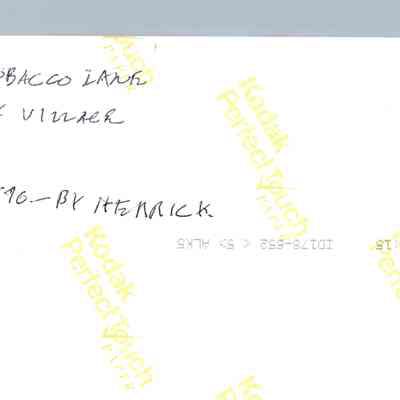 OBACCO LANE
VILLAGE
96.- BY HERRICK
Kodak
Perfect Touch
Kodak
Perfect Touch
ID178-652 < 5> ALK5